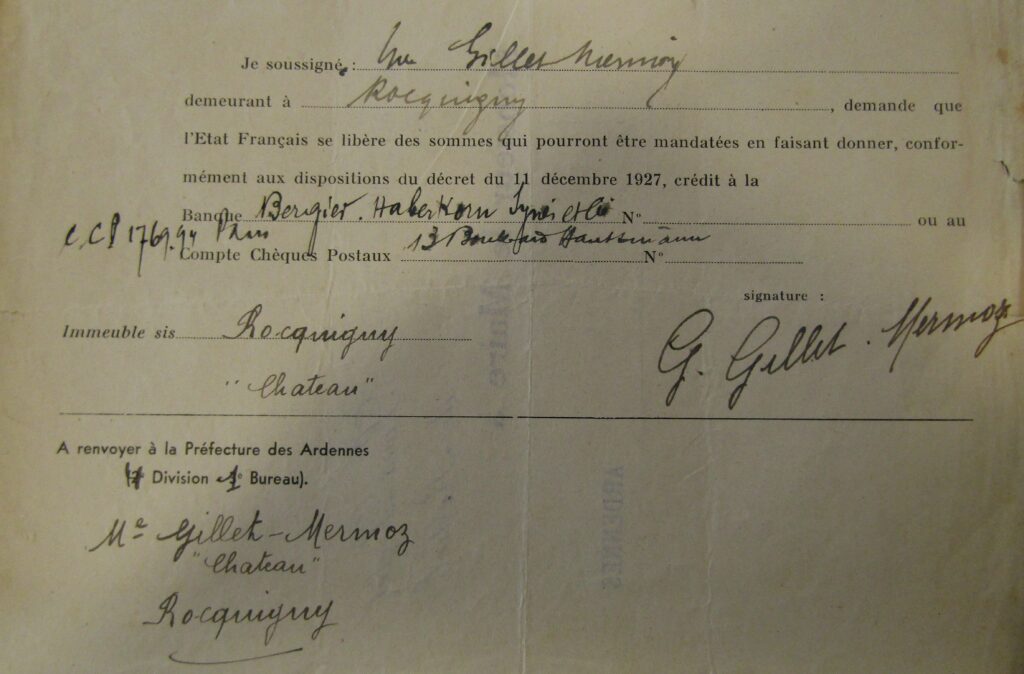 Je soussigné, : Me Gillet Mermoz
demeurant à Rocquigny, demande que
l'Etat Français se libère des sommes qui pourront être mandatées en faisant donner, confor-
mément aux dispositions du décret du 11 décembre 1927, crédit à la
Banque Bergier. Haberkorn et Cie N° ou au
C.C.P 1769.94 Paris
Compte Chèques Postaux 13 Boulevard Haussmann N°
signature :
Immeuble sis Rocquigny
"Chateau"
G. Gillet. Mermoz
A renvoyer à la Préfecture des Ardennes
Division 1e Bureau).
Me Gillet-Mermoz
"Chateau"
Rocquigny
ARDENNES